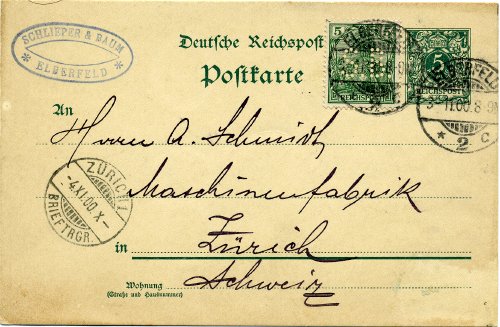 SCHLIEPER & BAUM
ELBERFELD
Deutsche Reichspost
Postkarte
5
REICHSPOST
5
REICHSPOST
ELBERFELD
3-11.00.8-9
* 2 c
An
Herrn A. Schmidt,
Maschinenfabrik
in Zürich
Schweiz
ZÜRICH 1
-4.XI.00.X-
BRIEFTRGR.
Wohnung
(Straße und Hausnummer)